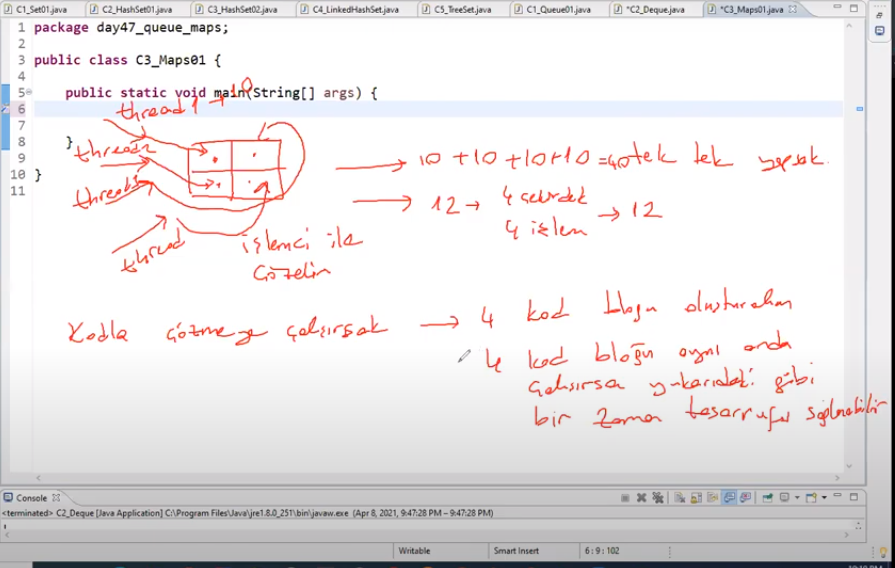 C1_Set01.java C2_HashSet01.java C3_HashSet02.java C4_LinkedHashSet.java C5_TreeSet.java C1_Queue01.java *C2_Deque.java *C3_Maps01.java
1 package day47_queue_maps;
2
3 public class C3_Maps01 {
4
5 public static void main(String[] args) {
6
7
8 }
9
10 }
11
thread1 → 10
thread2
thread3
thread
10 + 10 + 10 + 10 = 40 tek tek yaparsak
12 → 4 çekirdek
4 işlem → 12
işlemci ile
çözelim
Kodla çözmeye çalışırsak → 4 kod bloğu oluştururken
4 kod bloğu aynı anda
çalışırsa yukarıdaki gibi
bir zaman tasarrufu sağlanabilir
Console
<terminated> C2_Deque [Java Application] C:\Program Files\Java\jre1.8.0_251\bin\javaw.exe (Apr 8, 2021, 9:47:28 PM – 9:47:28 PM)
Writable Smart Insert 6 : 9 : 102